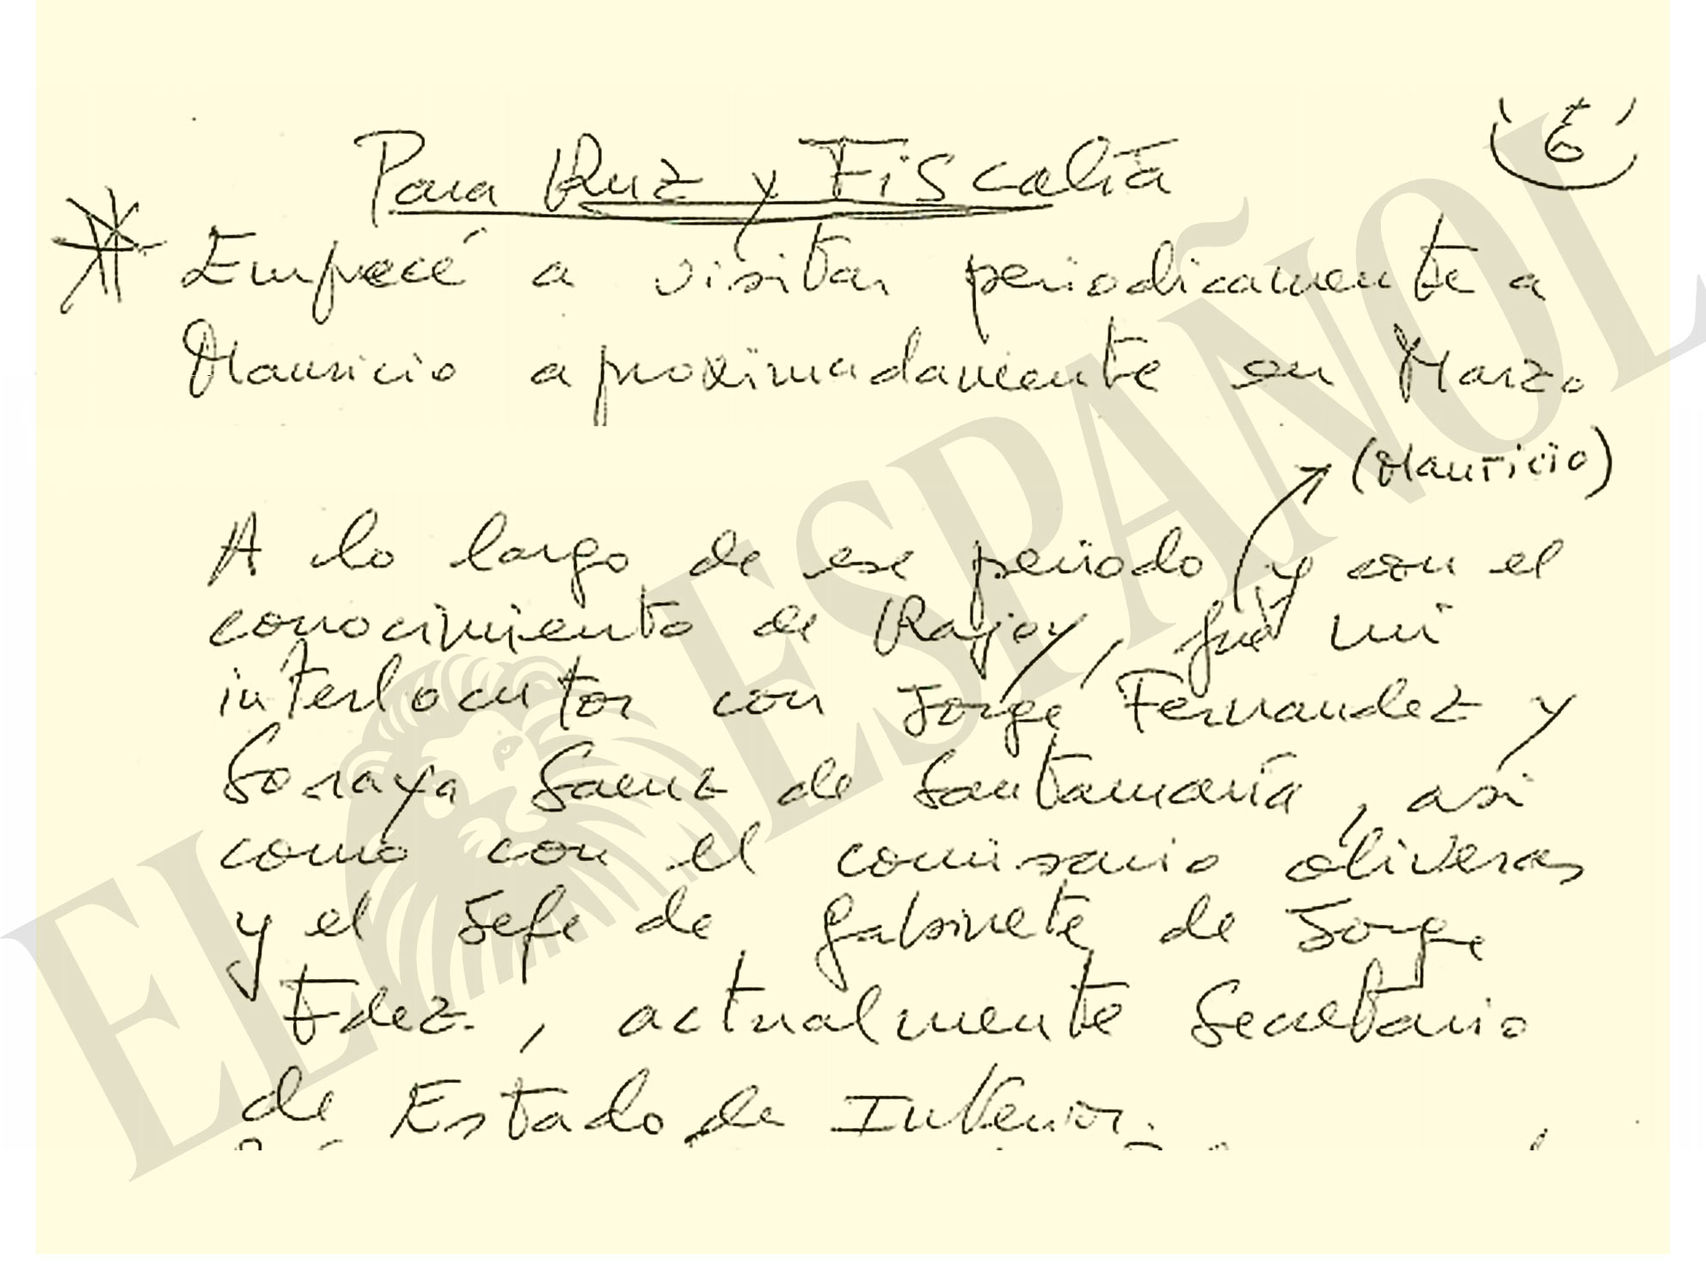 6
Para Ruz y Fiscalía
Empecé a visitar periodicamente a
Mauricio aproximadamente en Marzo
(Mauricio)
A lo largo de ese periodo y con el
conocimiento de Rajoy, fué mi
interlocutor con Jorge Fernandez y
Soraya Saenz de Santamaría, asi
como con el comisario Oliveras
y el Jefe de Gabinete de Jorge
Fdez., actualmente Secretario
de Estado de Interior.
EL ESPAÑOL